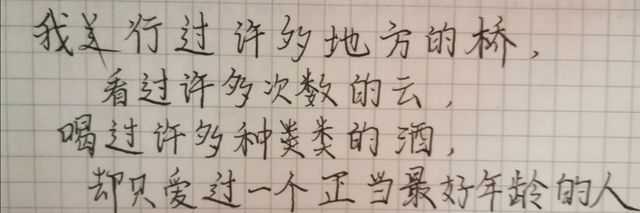 我美行过许多地方的桥，
看过许多次数的云，
喝过许多种类类的酒，
却只爱过一个正当最好年龄的人